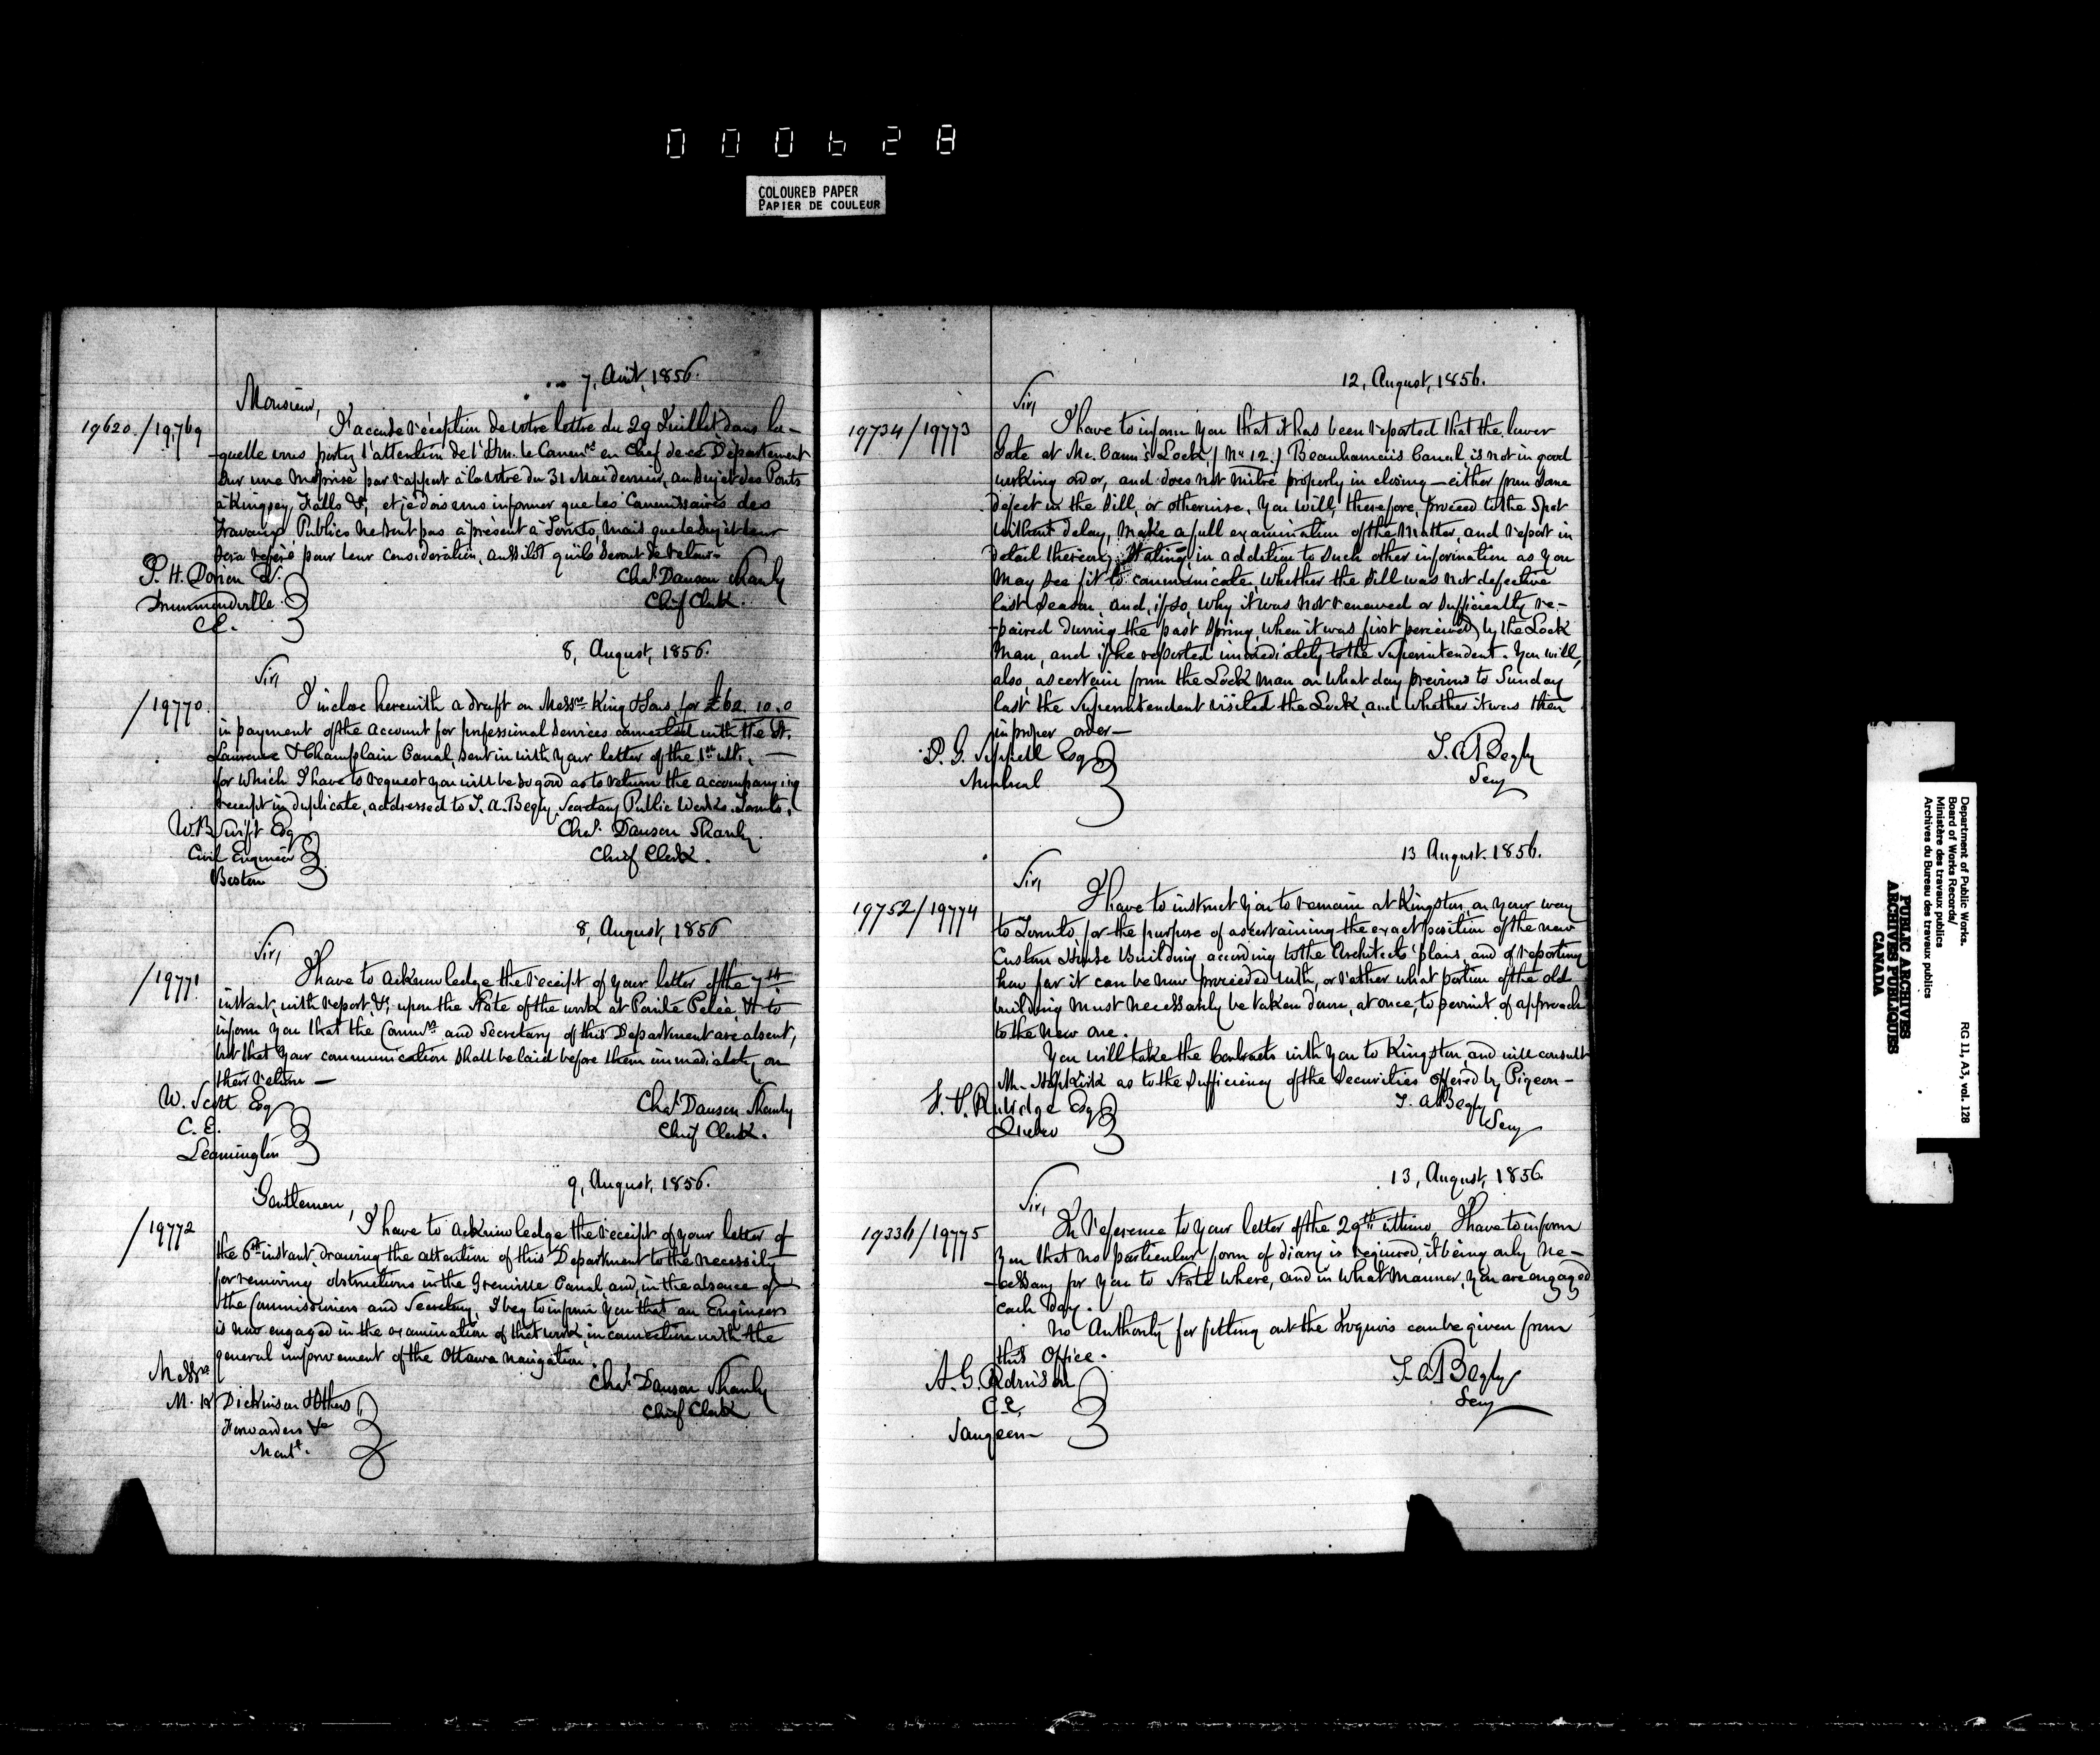 000628
COLOURED PAPER
PAPIER DE COULEUR
7, Août, 1856.
Monsieur,
19620/19769
J'accuse réception de votre lettre du 29 Juillet dans la-
-quelle vous portez l'attention de l'Hon. le Commre en Chef de ce Département
sur une méprise par rapport à la votre du 31 Mai dernier, au sujet des Ponts
à Kingsey, Falls &c, et je dois vous informer que les Commissaires des
Travaux Publics ne sont pas à présent à Toronto, mais que le sujet leur
sera référé pour leur considération, aussitôt qu'ils seront de retour-
P. H. Dorion
Drummondville
C.E.
Chas. Dawson Shanly
Chief Clerk.
8, August, 1856.
Sir,
/19770.
I inclose herewith a draft on Messrs King & Sons, for £62. 10. 0
in payment of the account for professional services connected with the St.
Lawrence & Champlain Canal, sent in with your letter of the 1st ulti. —
for which I have to request you will be so good as to return the accompanying
receipt in duplicate, addressed to T. A. Begly, Secretary Public Works. Toronto.
W. B. Swift Esq
Civil Engineer
Boston
Chas. Dawson Shanly.
Chief Clerk.
8, August, 1856
Sir,
/19771.
I have to acknowledge the receipt of your letter of the 7th
instant, with report, &c, upon the state of the work at Pointe Pelée, & to
inform you that the Commrs and Secretary of this Department are absent,
but that your communication shall be laid before them immediately on
their return —
W. Scott Esq
C. E.
Leamington
Chas. Dawson Shanly
Chief Clerk.
9, August, 1856.
Gentlemen,
/19772
I have to acknowledge the receipt of your letter of
the 6th instant, drawing the attention of this Department to the necessity
for removing obstructions in the Grenville Canal, and, in the absence of
the Commissioners and Secretary, I beg to inform you that an Engineer
is now engaged in the examination of that work, in connection with the
general improvement of the Ottawa navigation.
Messrs
M. K. Dickinson & Others
Forwarders &c
Montl.
Chas. Dawson Shanly
Chief Clerk
12, August, 1856.
Sir,
19734/19773
I have to inform you that it has been reported that the lower
Gate at Mc. Cann's Lock, (No 12.) Beauharnois Canal is not in good
working order, and does not mitre properly in closing — either from some
defect in the sill, or otherwise. You will, therefore, proceed to the spot
without delay, make a full examination of the matter, and report in
detail thereon, stating, in addition to such other information as you
may see fit to communicate, whether the sill was not defective
last season, and, if so, why it was not renewed or sufficiently re-
-paired during the past spring, when it was first perceived by the Lock
Man, and if he reported immediately to the Superintendent. You will,
also, ascertain from the Lock Man on what day previous to Sunday
last the Superintendent visited the Lock, and whether it was then
in proper order —
Sippell Esq
Montreal
T. A. Begly
Secy
13 August. 1856.
Sir,
19752/19774
I have to instruct you to remain at Kingston, on your way
to Toronto, for the purpose of ascertaining the exact position of the new
Custom House Building according to the Architects' plans, and of reporting
how far it can be now proceeded with, or rather what portion of the old
building must necessarily be taken down, at once, to permit of approach
to the new one.
You will take the Contracts with you to Kingston, and will consult
Mr. Hopkirk as to the sufficiency of the securities offered by Pigeon —
F. P. Rubidge Esq
Quebec
T. A. Begly
Secy
13, August, 1856.
Sir,
19336/19775
In reference to your letter of the 29th ultimo, I have to inform
you that no particular form of diary is required, it being only ne-
-cessary for you to state where, and in what manner, you are engaged
each day.
No authority for fitting out the Iroquois can be given from
this Office.
A. G. Robinson
C.E.
Saugeen
T. A. Begly
Secy
Department of Public Works.
Board of Works Records/
Ministère des travaux publics
Archives du Bureau des travaux publics
RG 11, A3, vol. 128
PUBLIC ARCHIVES
ARCHIVES PUBLIQUES
CANADA